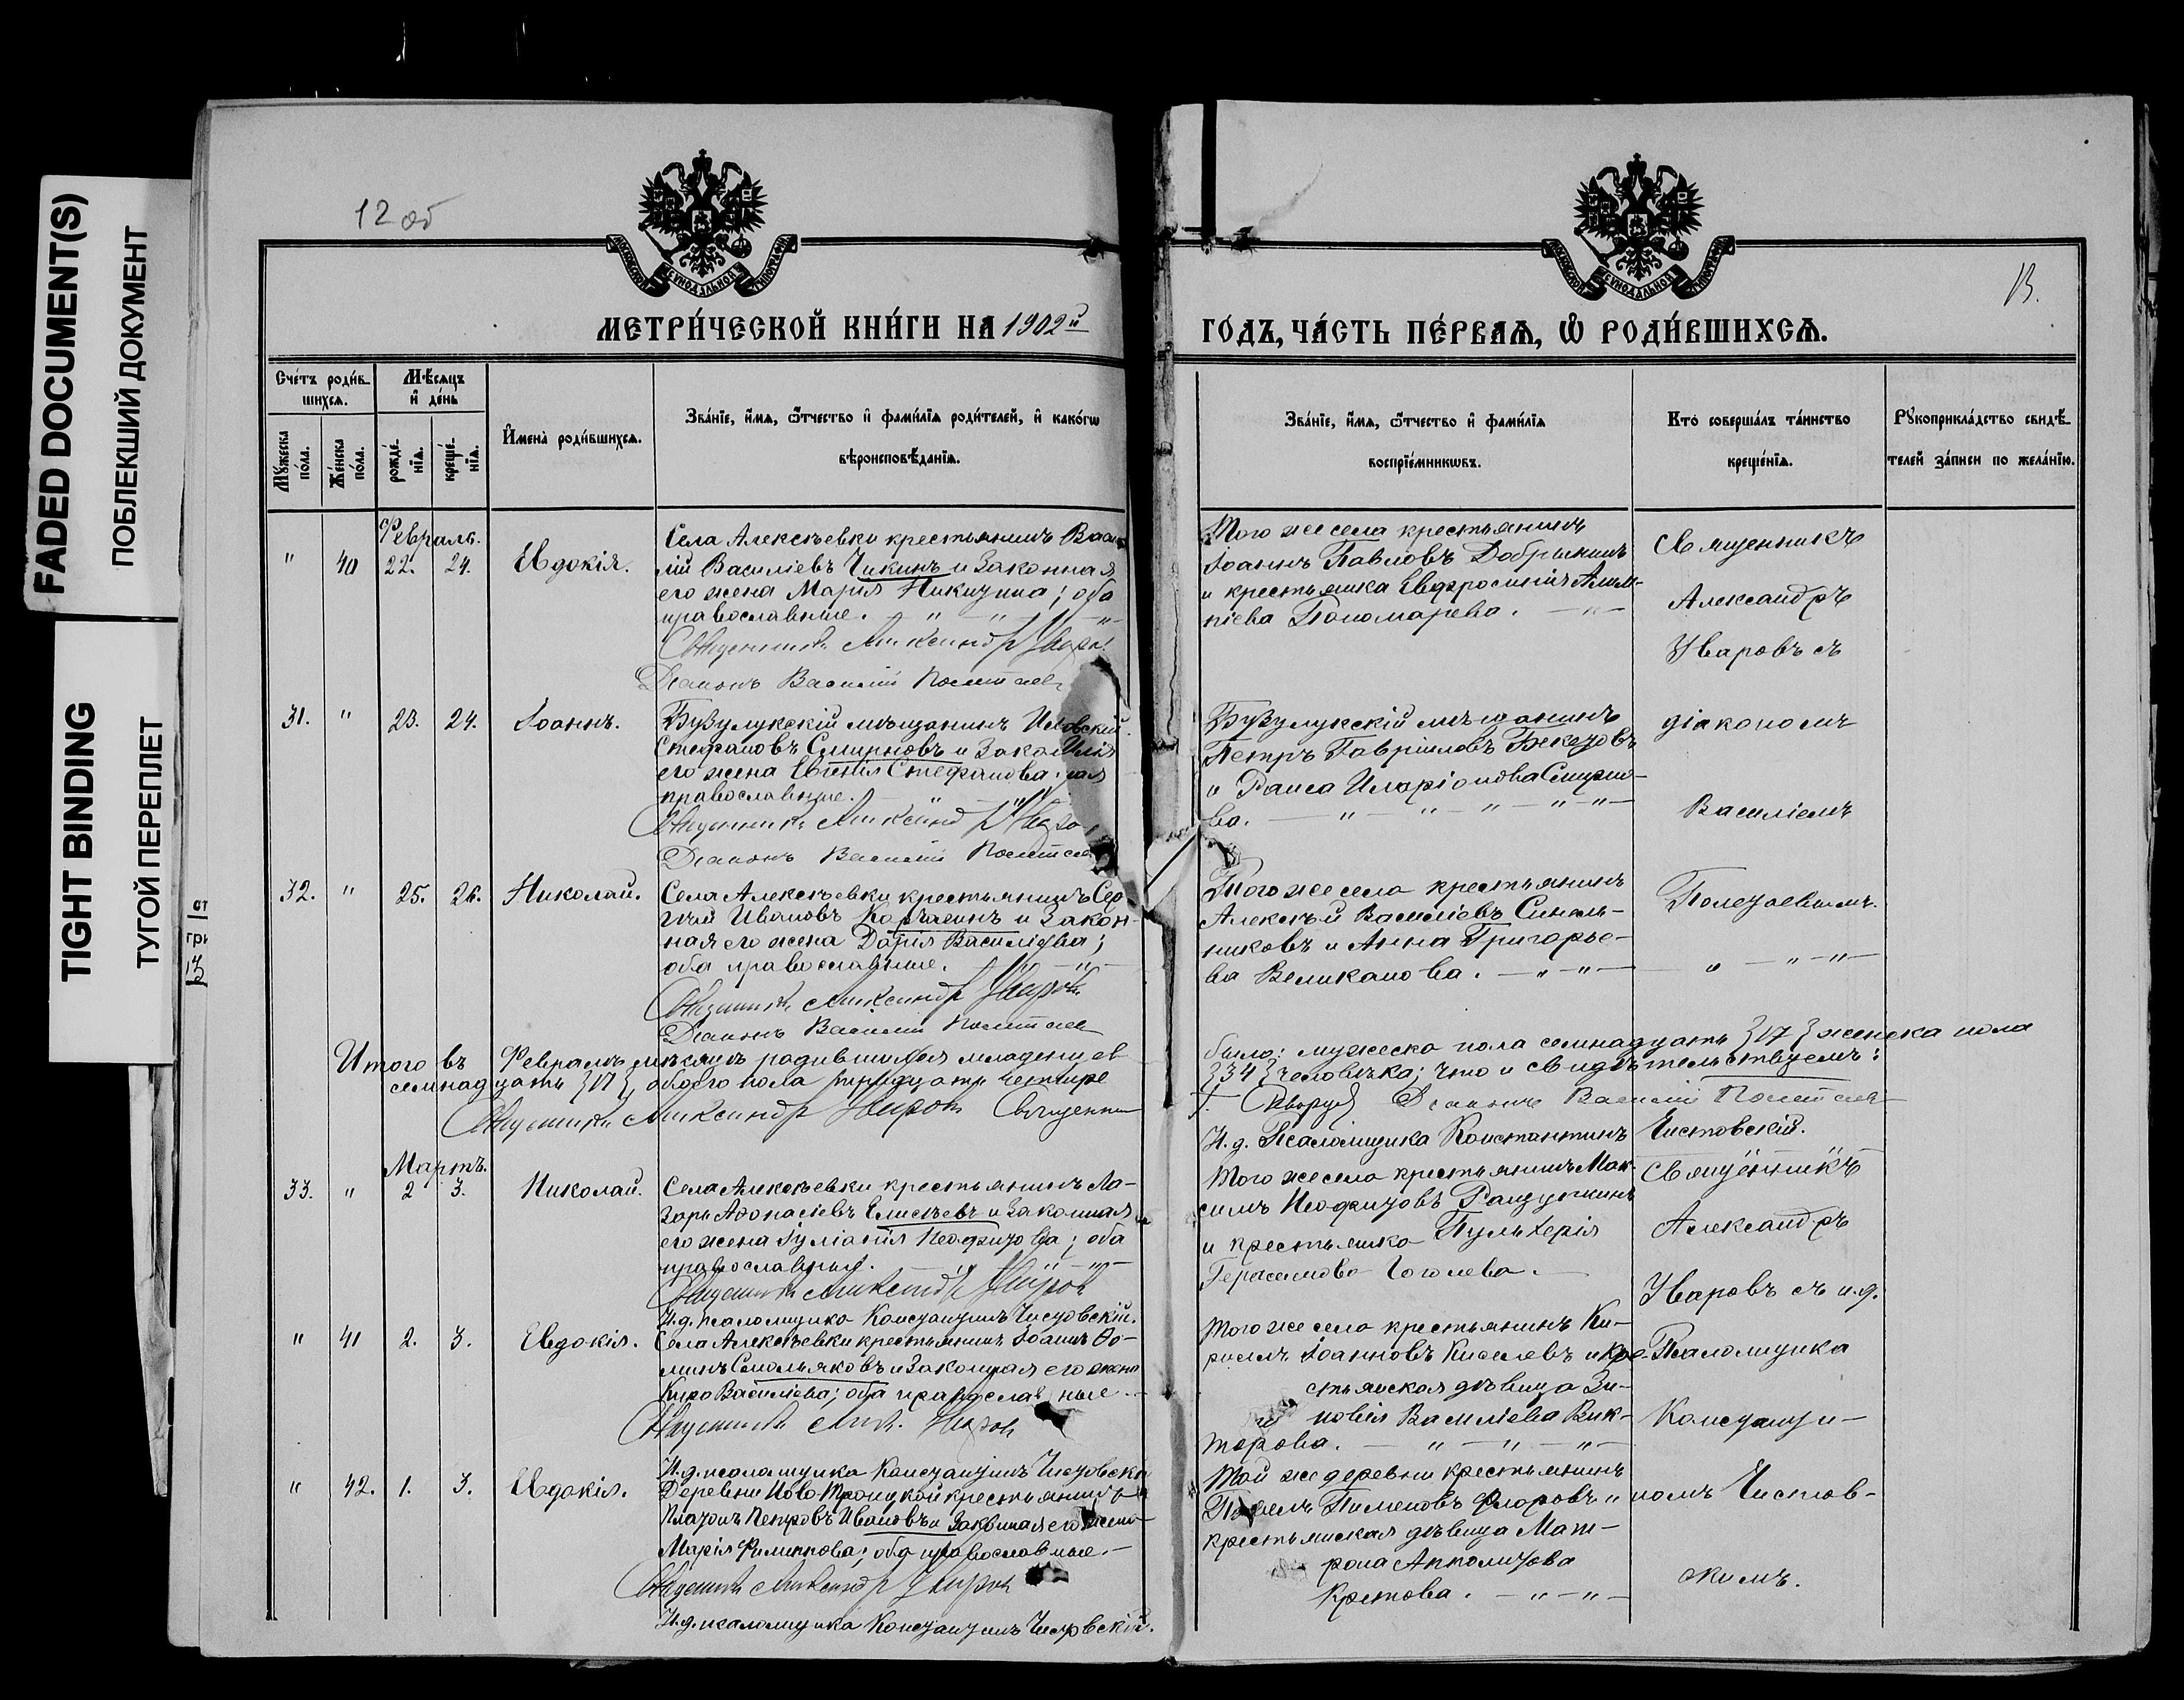 FADED DOCUMENT(S)
ПОБЛЕКШИЙ ДОКУМЕНТ
TIGHT BINDING
ТУГОЙ ПЕРЕПЛЕТ
12 об
13.
МЕТРИ́ЧЕСКОЙ КНИ́ГИ НА 1902й
ГО́ДЪ, ЧА́СТЬ ПЕ́РВАѦ, Ѡ҆ РОДИ́ВШИХСѦ.
Сче́тъ роди́вшихсѧ.
Мꙋ́жеска по́ла.
Же́нска по́ла.
Мѣ́сѧцъ и҆ де́нь
рожде́нїѧ.
креще́нїѧ.
И҆мена̀ роди́вшихсѧ.
Зва́нїе, и҆́мѧ, ѻ҆́тчество и҆ фами́лїѧ роди́телей, и҆ како́гѡ
вѣроисповѣ́данїѧ.
Зва́нїе, и҆́мѧ, ѻ҆́тчество и҆ фами́лїѧ
воспрїе́мникѡвъ.
Кто̀ соверша́лъ та́инство
креще́нїѧ.
Рꙋкоприкла́дство свидѣ́
телей за́писи по жела́нїю.
Февраль.
" 40 22. 24. Евдокія.
Села Алексѣевки крестьянинъ Васи
лій Василіевъ Чикинъ и законная
его жена Марія Никитина; оба
православные. — " — " — " —
Священникъ Александръ Уваровъ
Діаконъ Василій Полетаев
Того же села крестьянинъ
Іоаннъ Павловъ Добрынинъ
и крестьянка Евфросинія Алим-
піева Пономарева. — " —
Священникъ
Александръ
Уваровъ съ
31. " 23. 24. Іоаннъ.
Бузулукскій мѣщанинъ
Стефановъ Смирновъ и закон
его жена Евгенія Стефанова.
православные. — " — " —
Священникъ Александръ Уваро
Діаконъ Василій Полетаев
Бузулукскій мѣщанинъ
Петръ Гавріиловъ Бекетовъ
и Раиса Иларіонова Смирно-
ва. — " — " — " — " — " —
діакономъ
Василіемъ
32. " 25. 26. Николай.
Села Алексѣевки крестьянинъ Сер
гѣй Ивановъ Карчагинъ и закон-
ная его жена Дарія Василіева;
оба православные. — " — " —
Священникъ Александръ Уваровъ
Діаконъ Василій Полетаев
Того же села крестьянинъ
Алексѣй Василіевъ Синель-
никовъ и Анна Григорье-
ва Великанова. — " — " —
Полетаевымъ.
" — " — " —
Итого въ Февралѣ мѣсяцѣ родившихся младенцев
было: мужеска пола семнадцать }17{ женска пола
семнадцать }17{, обоего пола тридцать четыре
}34{ человѣка; что и свидѣтельствуемъ:
Священникъ Александръ Уваровъ Священни
Діаконъ Василій Полетаев
И. д. Псаломщика Константинъ Чистовскій.
Мартъ.
33. " 2 3. Николай.
Села Алексѣевки крестьянинъ Ла-
зарь Аѳонасіевъ Елисѣевъ и законная
его жена Іуліанія Неофитова; оба
православные. — " — " — " —
Священникъ Александръ Уваровъ
И.д. псаломщика Константинъ Чистовскій.
Того же села крестьянинъ Мак-
симъ Неофитовъ
и крестьянка Пульхерія
Герасимова Гоголева. —
Священникъ
Александръ
Уваровъ съ и.д.
" 41 2. 3. Евдокія.
Села Алексѣевки крестьянинъ Іоаннъ Ѳо-
минъ Смольяковъ и законная его жена
Кира Василіева; оба православные. —
Священникъ Алек. Уваровъ
И.д. псаломщика Константинъ Чистовскі
Того же села крестьянинъ Ки-
риллъ Іоанновъ Киселевъ и кре-
стьянская дѣвица Зи-
новія Василіева Вик-
торова. — " — " — " —
Псаломщика
Константи-
" 42. 1. 3. Евдокія.
Деревни Ново-Троицкой крестьянинъ
Платонъ Петровъ Ивановъ и законная его жена
Марія Филиппова; оба православные. —
Священникъ Александръ Уваровъ
И.д. псаломщика Константинъ Чистовскій.
Той же деревни крестьянинъ
Пименовъ Флоровъ и
крестьянская дѣвица Мат-
рона Апполитова
Кретова. — " — " —
номъ Чистов-
скимъ.